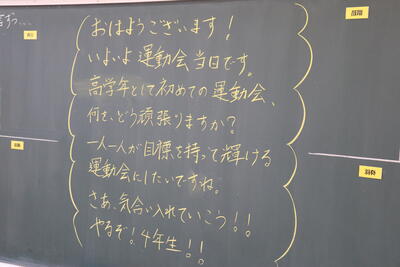 おはようございます!
いよいよ運動会当日です。
高学年として初めての運動会、
何を、どう頑張りますか?
一人一人が目標を持って輝ける
運動会にしたいですね。
さあ、気合い入れていこう!!
やるぞ!4年生!!